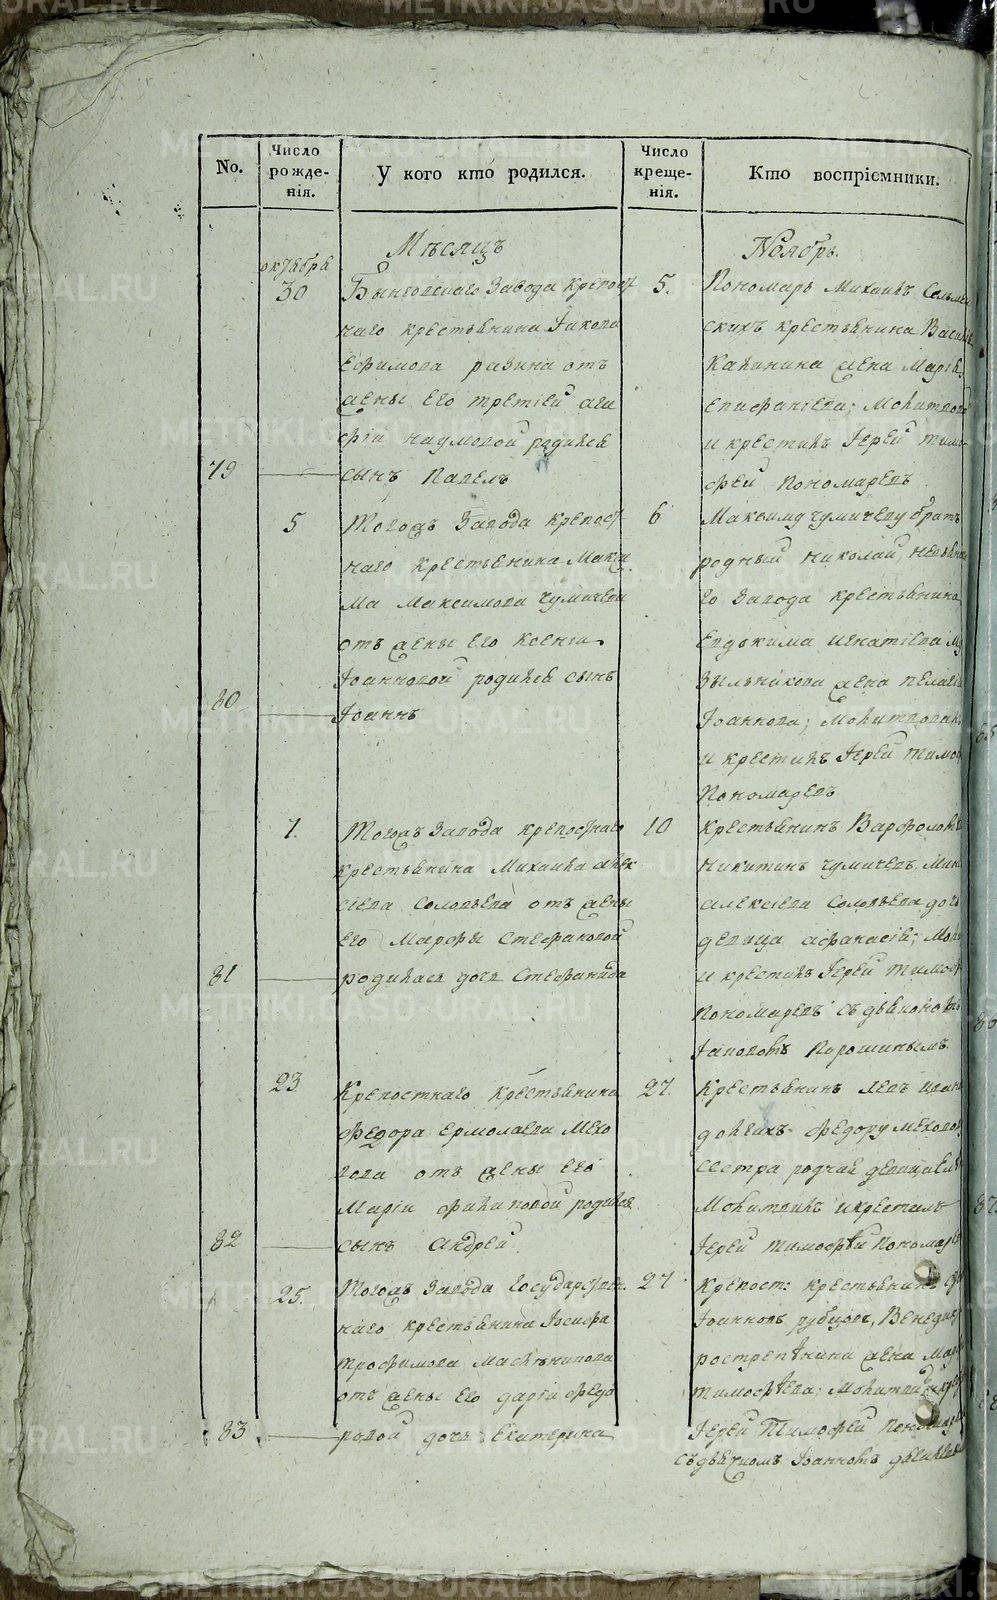 No.
Число рожде- нія.
У кого кто родился.
Число креще- нія.
Кто воспріемники.
Мѣсяцъ
Ноябрь.
октября
30
Быньговскаго Завода крепост
наго крестьянина Іакова
Ефимова разина отъ
жены его третіей ага
фіи наумовой родился
79
сынъ Павелъ
5.
Пономарь Михаилъ
скихъ крестьянина Василія
Калинина жена Марія
епифаніева; Молитвовалъ
и крестилъ Іерей тимо
фей пономаревъ
5
Тогожъ Завода крепост
наго крестьянина Макси
ма Максимова чумичева
отъ жены его Ксеніи
Іоанновой родился сынъ
80
Іоаннъ
6
Максиму чумичеву братъ
родный николай,
го Завода крестьянина
Евдокима игнатіева
зыльникова жена пелагія
Іоаннова; Молитвовалъ
и крестилъ Іерей тимоф
Пономаревъ
7.
Тогожъ Завода крепостнаго
крестьянина Михаила алек
сіева соловьева отъ жены
его Марфы стефановой
81
родилась дочь Стефанида
10
крестьянинъ Варфоломей
Никитинъ чумичевъ, Миха
алексіева Соловьева дочь
девица афанасія; Моли
и крестилъ Іерей тимоф
пономаревъ съ діакономъ
Іаковомъ Порошинымъ.
23
Крепостнаго крестьянина
федора ермолаева Мехо
вова отъ жены его
Маріи филиповой родился
82
сынъ Андрей
27.
Крестьянинъ левъ
федору Мехово
сестра родная девица
Молитвилъ и крестилъ
Іерей тимофѣй пономарев
25.
Тогожъ Завода Государствен
наго крестьянина Іосифа
трофимова Масленикова
отъ жены его даріи федо
83
ровой дочь Екатерина
27
Крепост: крестьянинъ
Іоанновъ рубцовъ, Венедик
жена Мар
тимофѣева; Молитвилъ и кр
Іерей Тимофей Пономарев
съ дьячкомъ Іоанномъ
METRIKI.GASO-URAL.RU